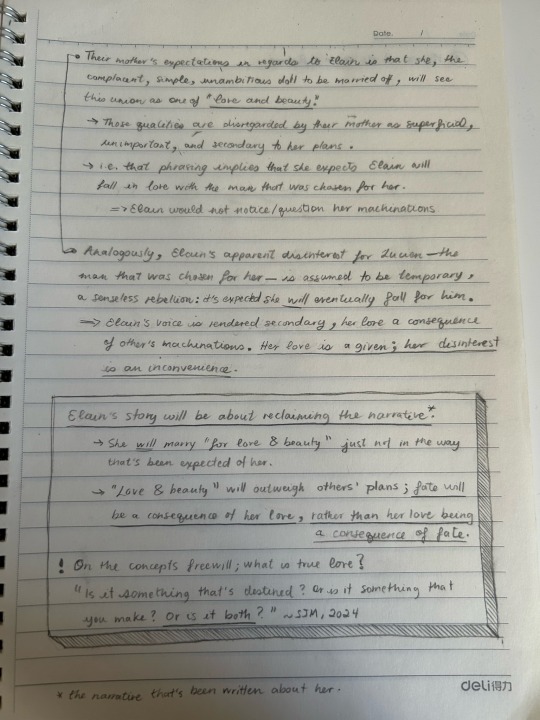 Date. /
• Their mother's expectations in regards to Elain is that she, the
complacent, simple, unambitious doll to be married off, will see
this union as one of "love and beauty."
→ Those qualities are disregarded by their mother as superficial,
unimportant, and secondary to her plans.
→ i.e. that phrasing implies that she expects Elain will
fall in love with the man that was chosen for her.
⇒ Elain would not notice/question her machinations
Analogously, Elain's apparent disinterest for Lucien — the
man that was chosen for her — is assumed to be temporary,
a senseless rebellion: it's expected she will eventually fall for him.
⇒ Elain's voice is rendered secondary, her love a consequence
of other's machinations. Her love is a given; her desinterest
is an inconvenience.
Elain's story will be about reclaiming the narrative*.
→ She will marry "for love & beauty" just not in the way
that's been expected of her.
→ "Love & beauty" will outweigh others' plans; fate will
be a consequence of her love, rather than her love being
a consequence of fate.
! On the concepts freewill; what is true love?
"Is it something that's destined? Or is it something that
you make? Or is it both?" ~SJM, 2024
* the narrative that's been written about her.
deli得力